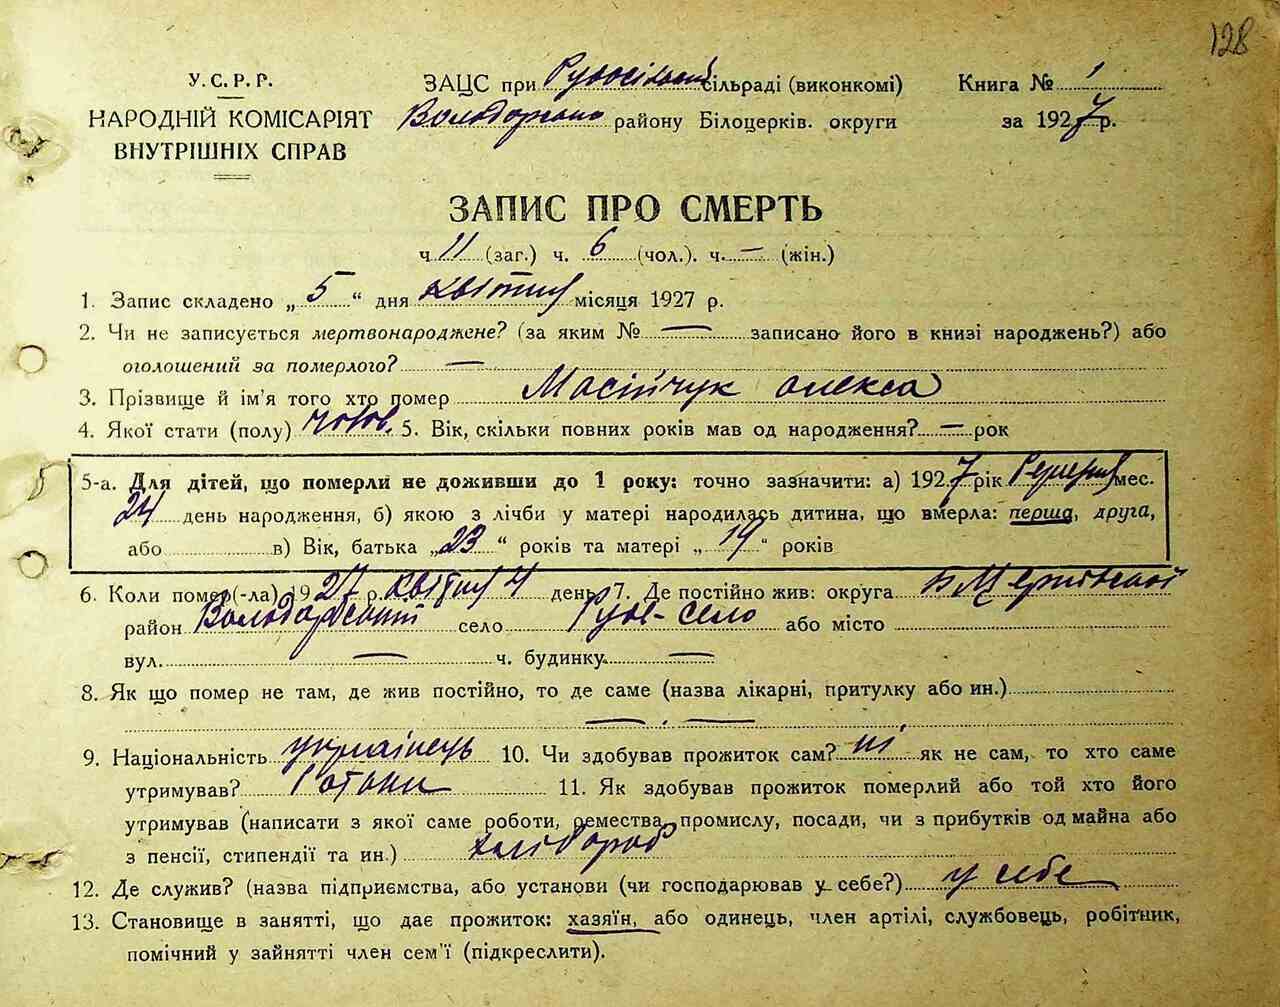 128
У.С.Р.Р.
НАРОДНІЙ КОМІСАРІЯТ
ВНУТРІШНІХ СПРАВ
ЗАЦС при Рудосільській сільраді (виконкомі)
Володарського району Білоцерків. округи
Книга № 1
за 1927 р.
ЗАПИС ПРО СМЕРТЬ
ч. 11 (заг.) ч. 6 (чол.). ч. — (жін.)
1. Запис складено „ 5 “ дня квітня місяця 1927 р.
2. Чи не записується мертвонароджене? (за яким № — записано його в книзі народжень?) або
оголошений за померлого? —
3. Прізвище й ім'я того хто помер Масійчук Олекса
4. Якої стати (полу) чолов. 5. Вік, скільки повних років мав од народження? — рок
5-а. Для дітей, що померли не доживши до 1 року: точно зазначити: а) 1927 рік мес.
24 день народження, б) якою з лічби у матері народилась дитина, що вмерла: перша, друга,
або в) Вік, батька „ 23 “ років та матері „ 19 “ років
6. Коли помер(-ла) 1927 р. квітня 4 день 7. Де постійно жив: округа Б Церківської
район Володарський село Руде-село або місто
вул. — ч. будинку —
8. Як що помер не там, де жив постійно, то де саме (назва лікарні, притулку або ин.)
— . —
9. Національність українець 10. Чи здобував прожиток сам? ні як не сам, то хто саме
утримував? батьки 11. Як здобував прожиток померлий або той хто його
утримував (написати з якої саме роботи, ремества, промислу, посади, чи з прибутків од майна або
з пенсії, стипендії та ин.) хлібороб
12. Де служив? (назва підприємства, або установи (чи господарював у себе?) у себе
13. Становище в занятті, що дає прожиток: хазяїн, або одинець, член артілі, службовець, робітник,
помічний у зайнятті член сем'ї (підкреслити).